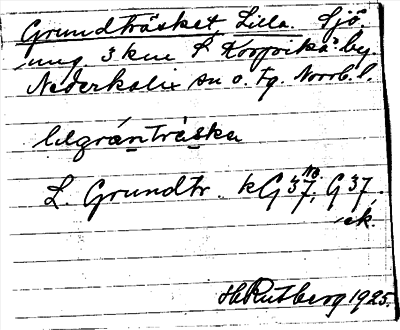 Grundträsket, Lilla. Sjö.
ung. 3 km S Korpikå by
Nederkalix sn o. Tg. Norrb. l.
lilgrãnträska
L. Grundtr. kG 37, G 37,
ek.
H Rutberg 1925.